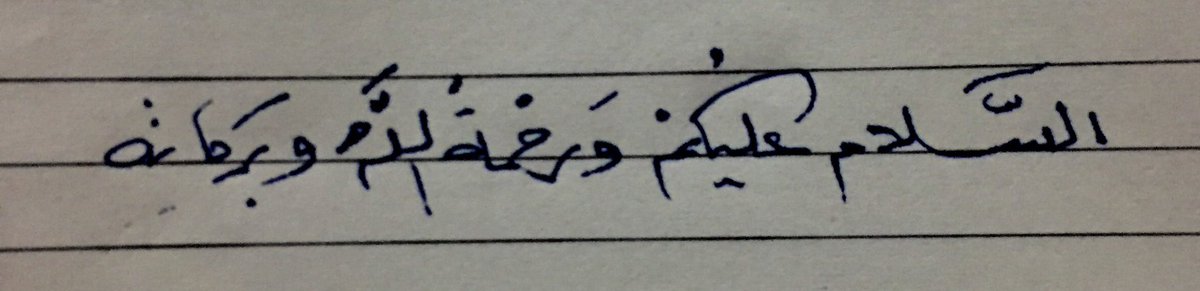 السَّلام عليكُمْ وَرَحْمَةُ اللَّه وبَركاته